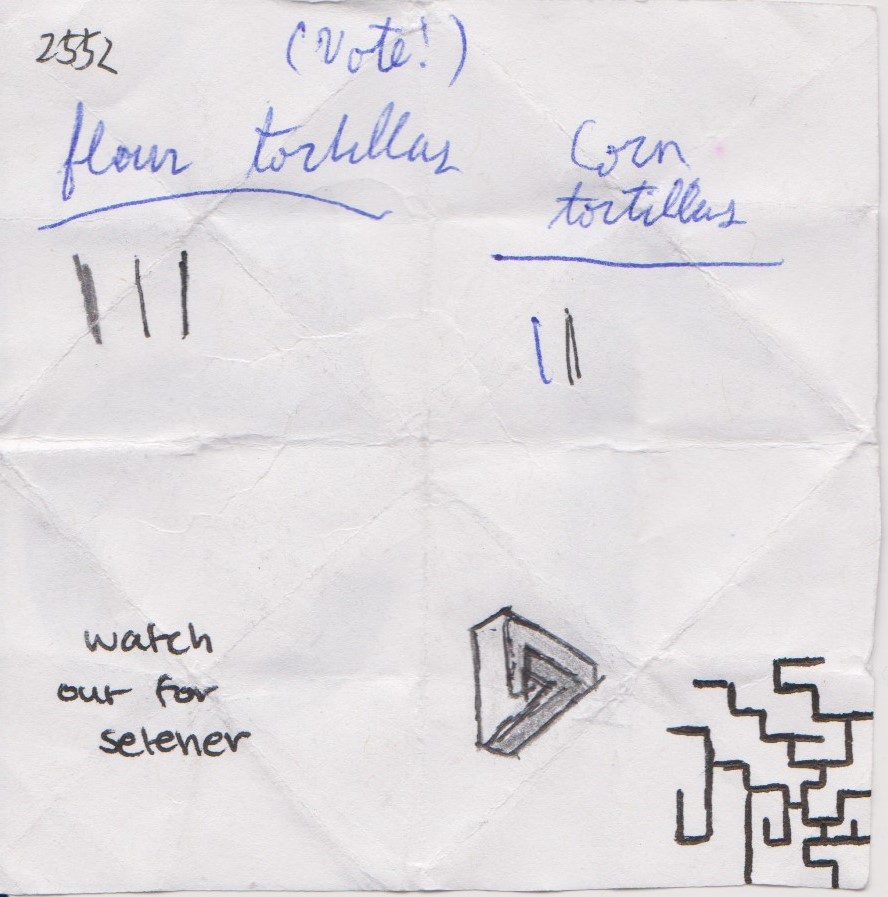 2552
(Vote!)
flour tortillas
Corn
tortillas
watch
out for
selener